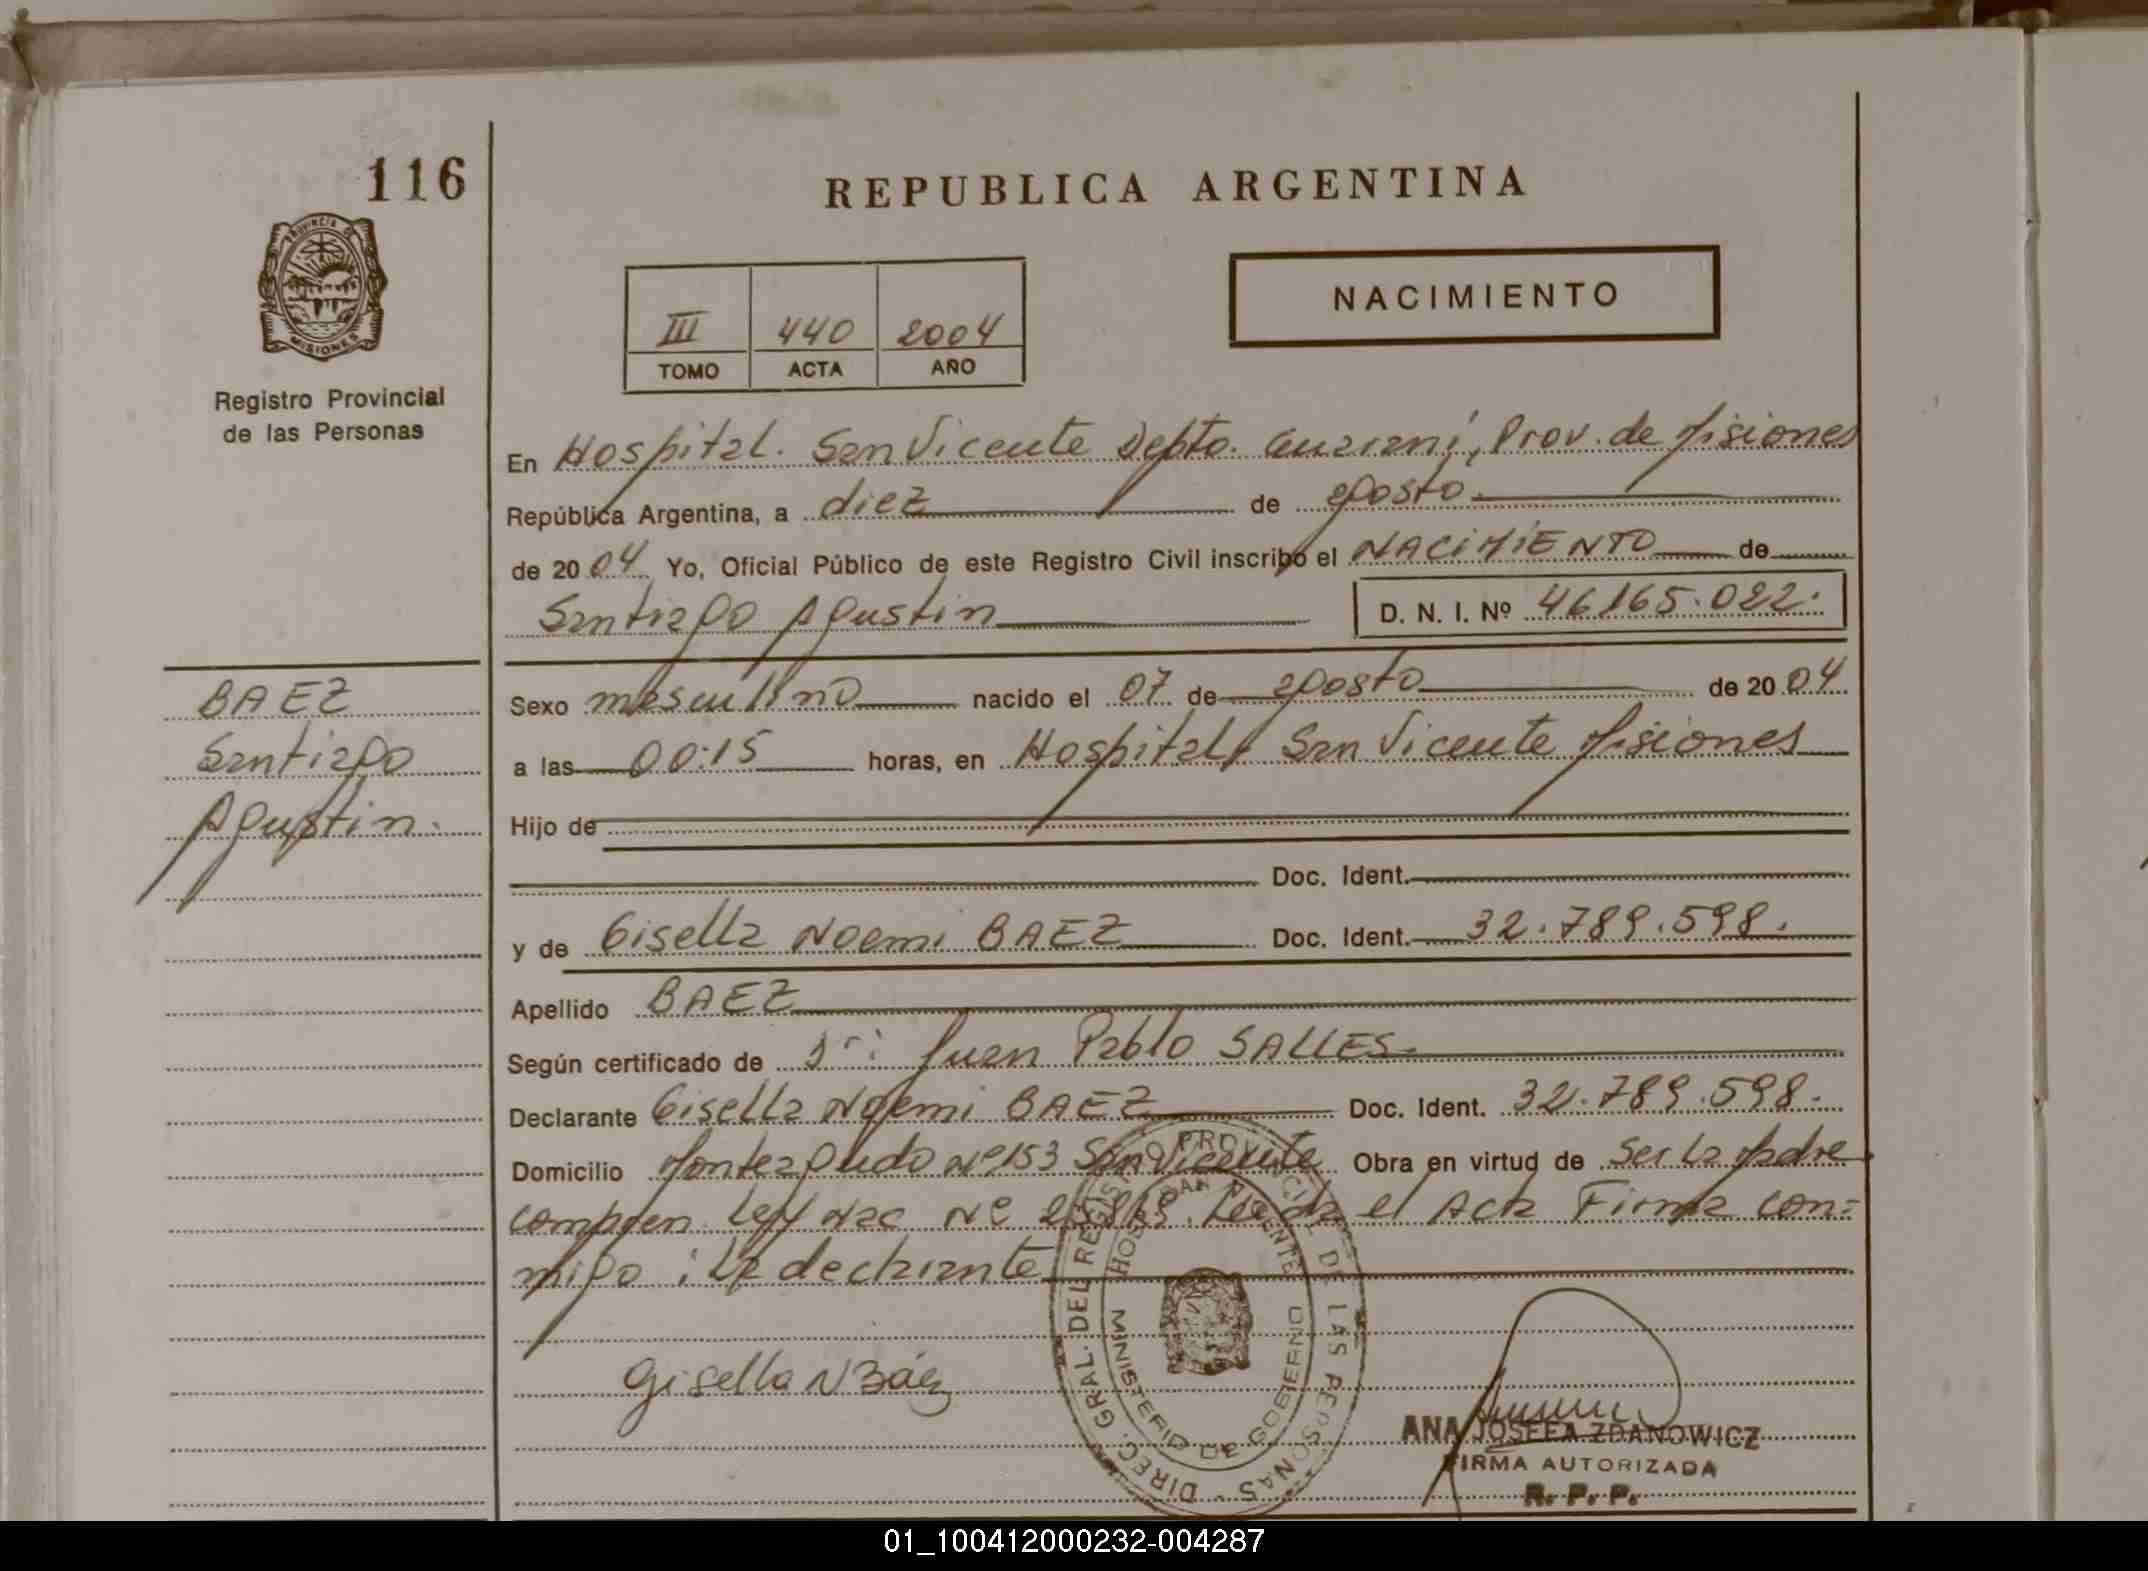 116
REPUBLICA ARGENTINA
PROVINCIA DE
MISIONES
NACIMIENTO
III 440 2004
TOMO ACTA AÑO
Registro Provincial
de las Personas
En Hospital. San Vicente Depto. Guarani, Prov. de Misiones
República Argentina, a diez de agosto.
de 2004 Yo, Oficial Público de este Registro Civil inscribo el NACIMIENTO de
Santiago Agustin D. N. I. Nº 46165.022.
BAEZ
Santiago
Agustin.
Sexo masculino nacido el 07 de agosto de 2004
a las 00:15 horas, en Hospital, San Vicente Misiones
Hijo de
Doc. Ident.
y de Gisella Noemi BAEZ Doc. Ident. 32.789.598.
Apellido BAEZ
Según certificado de Juan Pablo SALLES.
Declarante Gisella Noemi BAEZ Doc. Ident. 32.789.598.
Domicilio Monteagudo Nº 153 San Vicente Obra en virtud de Ser la Madre
Ley Nac Nº Leida el Acta Firma con-
migo : La declarante
DIREC. GRAL. DEL REGISTRO PROVINCIAL DE LAS PERSONAS -
HOSP. SAN VICENTE
MINISTERIO DE GOBIERNO
Gisella N Báez
ANA JOSEFA ZDANOWICZ
FIRMA AUTORIZADA
R. P. P.
01_100412000232-004287